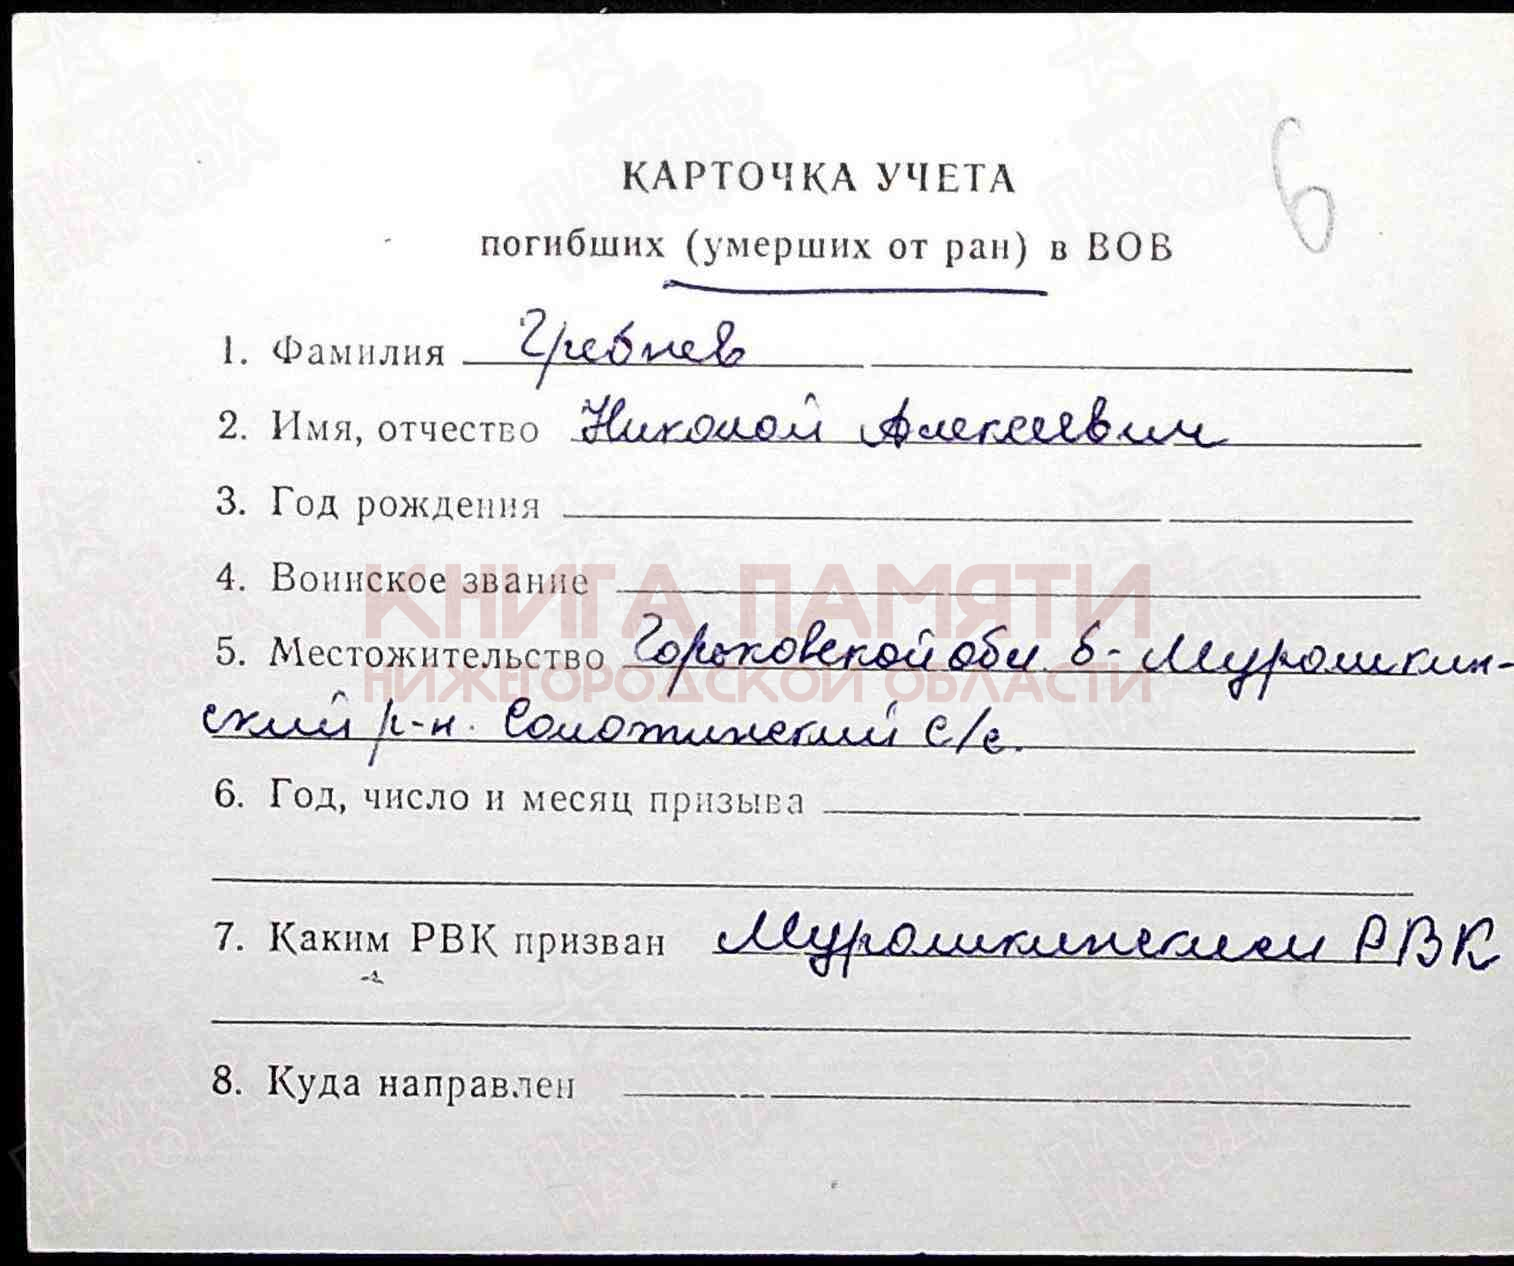 6
КАРТОЧКА УЧЕТА
погибших (умерших от ран) в ВОВ
1. Фамилия Гребнев
2. Имя, отчество Николай Алексеевич
3. Год рождения
4. Воинское звание
КНИГА ПАМЯТИ
5. Местожительство Горьковской обл. Б-Мурашкин-
НИЖЕГОРОДСКОЙ ОБЛАСТИ
ский р-н. Соломатинский с/с.
6. Год, число и месяц призыва
7. Каким РВК призван Мурашкинским РВК
8. Куда направлен
ПАМЯТЬ НАРОДА